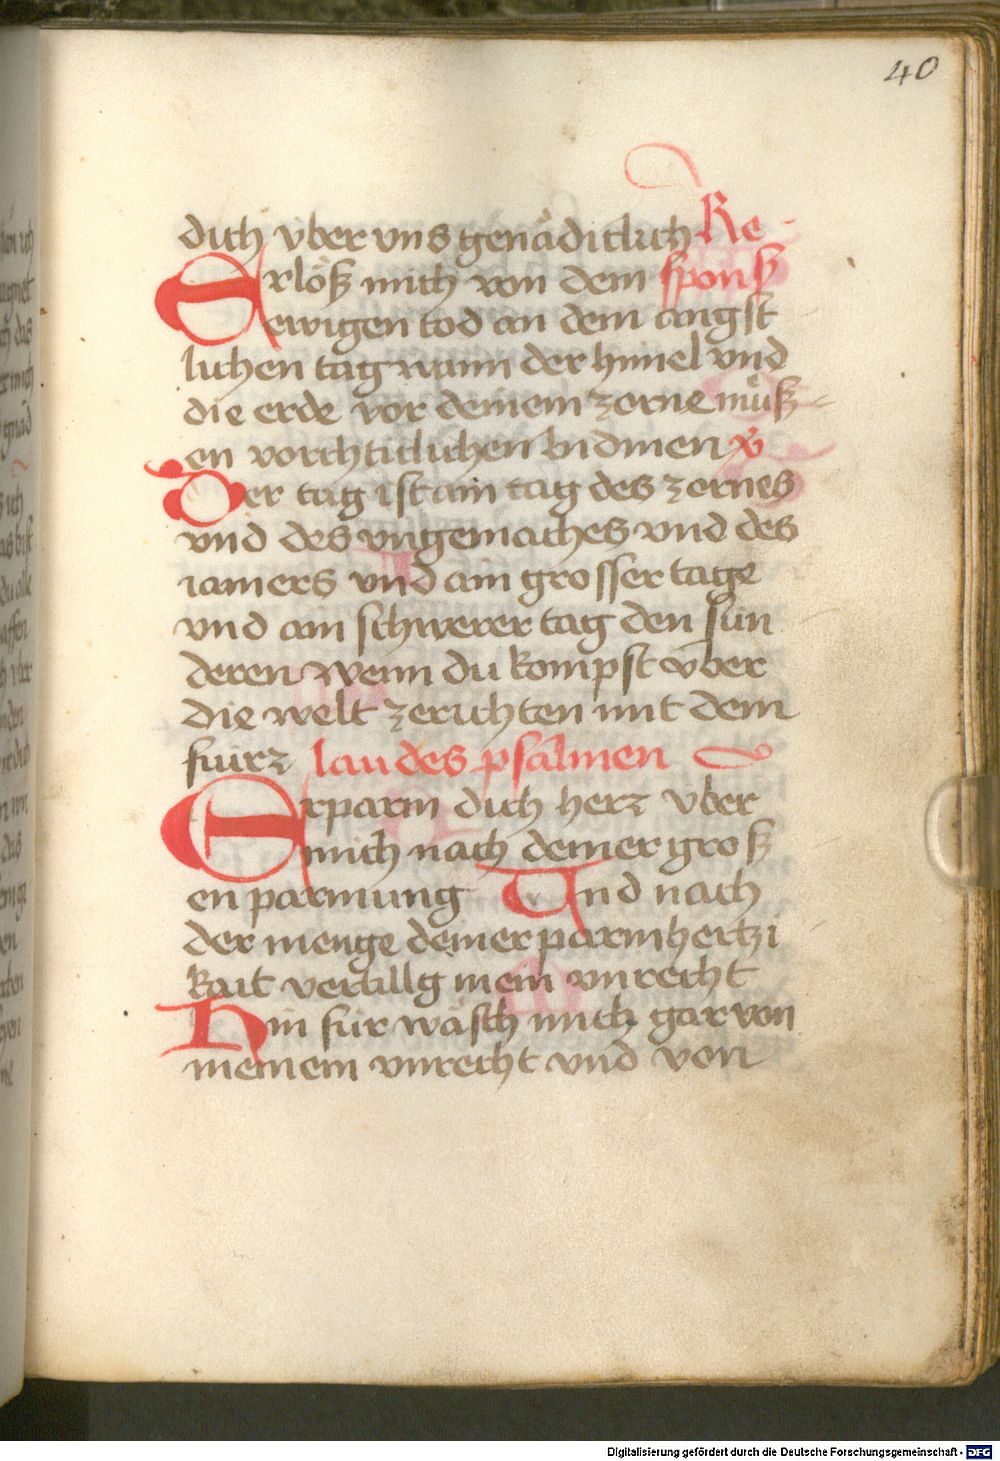 40
dich vber vns genäditclich Re
Erlöß mich von dem sponß
ewigen tod an dem angst
lichen tag wann der himel vnd
die erde vor deinem zorne müß
en vorchticlichen bidmen
Der tag ist ain tag des zornes
vnd des vngemaches vnd des
iamers vnd ain grosser tage
vnd ain schwerer tag den sün
deren wenn du kompst vber
die welt zerichten mit dem
fiurz laudes psalmen
Erparm dich herz vber
mich nach deiner groß
en parmung Vnd nach
der menge deiner parmhertzi
kait vertillg mein vnrecht
Hin für wäsch mich gar von
meinem vnrecht vnd von
Digitalisierung gefördert durch die Deutsche Forschungsgemeinschaft - DFG